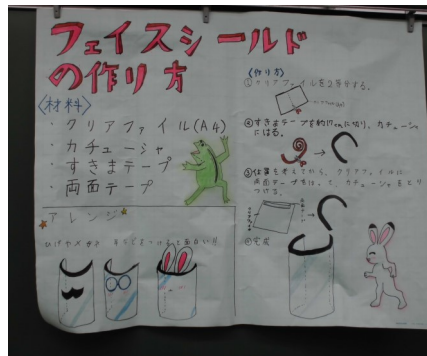 フェイスシールド
の作り方
〈材料〉
・クリアファイル(A4)
・カチューシャ
・すきまテープ
・両面テープ
アレンジ
ひげやメガネ
〈作り方〉
①クリアファイルを2等分する。
②すきまテープを約17cmに切り、カチューシャ
にはる。
③位置を考えてから、クリアファイルに
両面テープをはって、カチューシャをとり
つける。
④完成